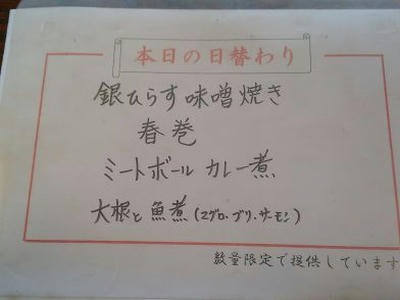 本日の日替わり
銀ひらす味噌焼き
春巻
ミートボール カレー煮
大根と魚煮(マグロ.ブリ.サーモン)
数量限定で提供しています